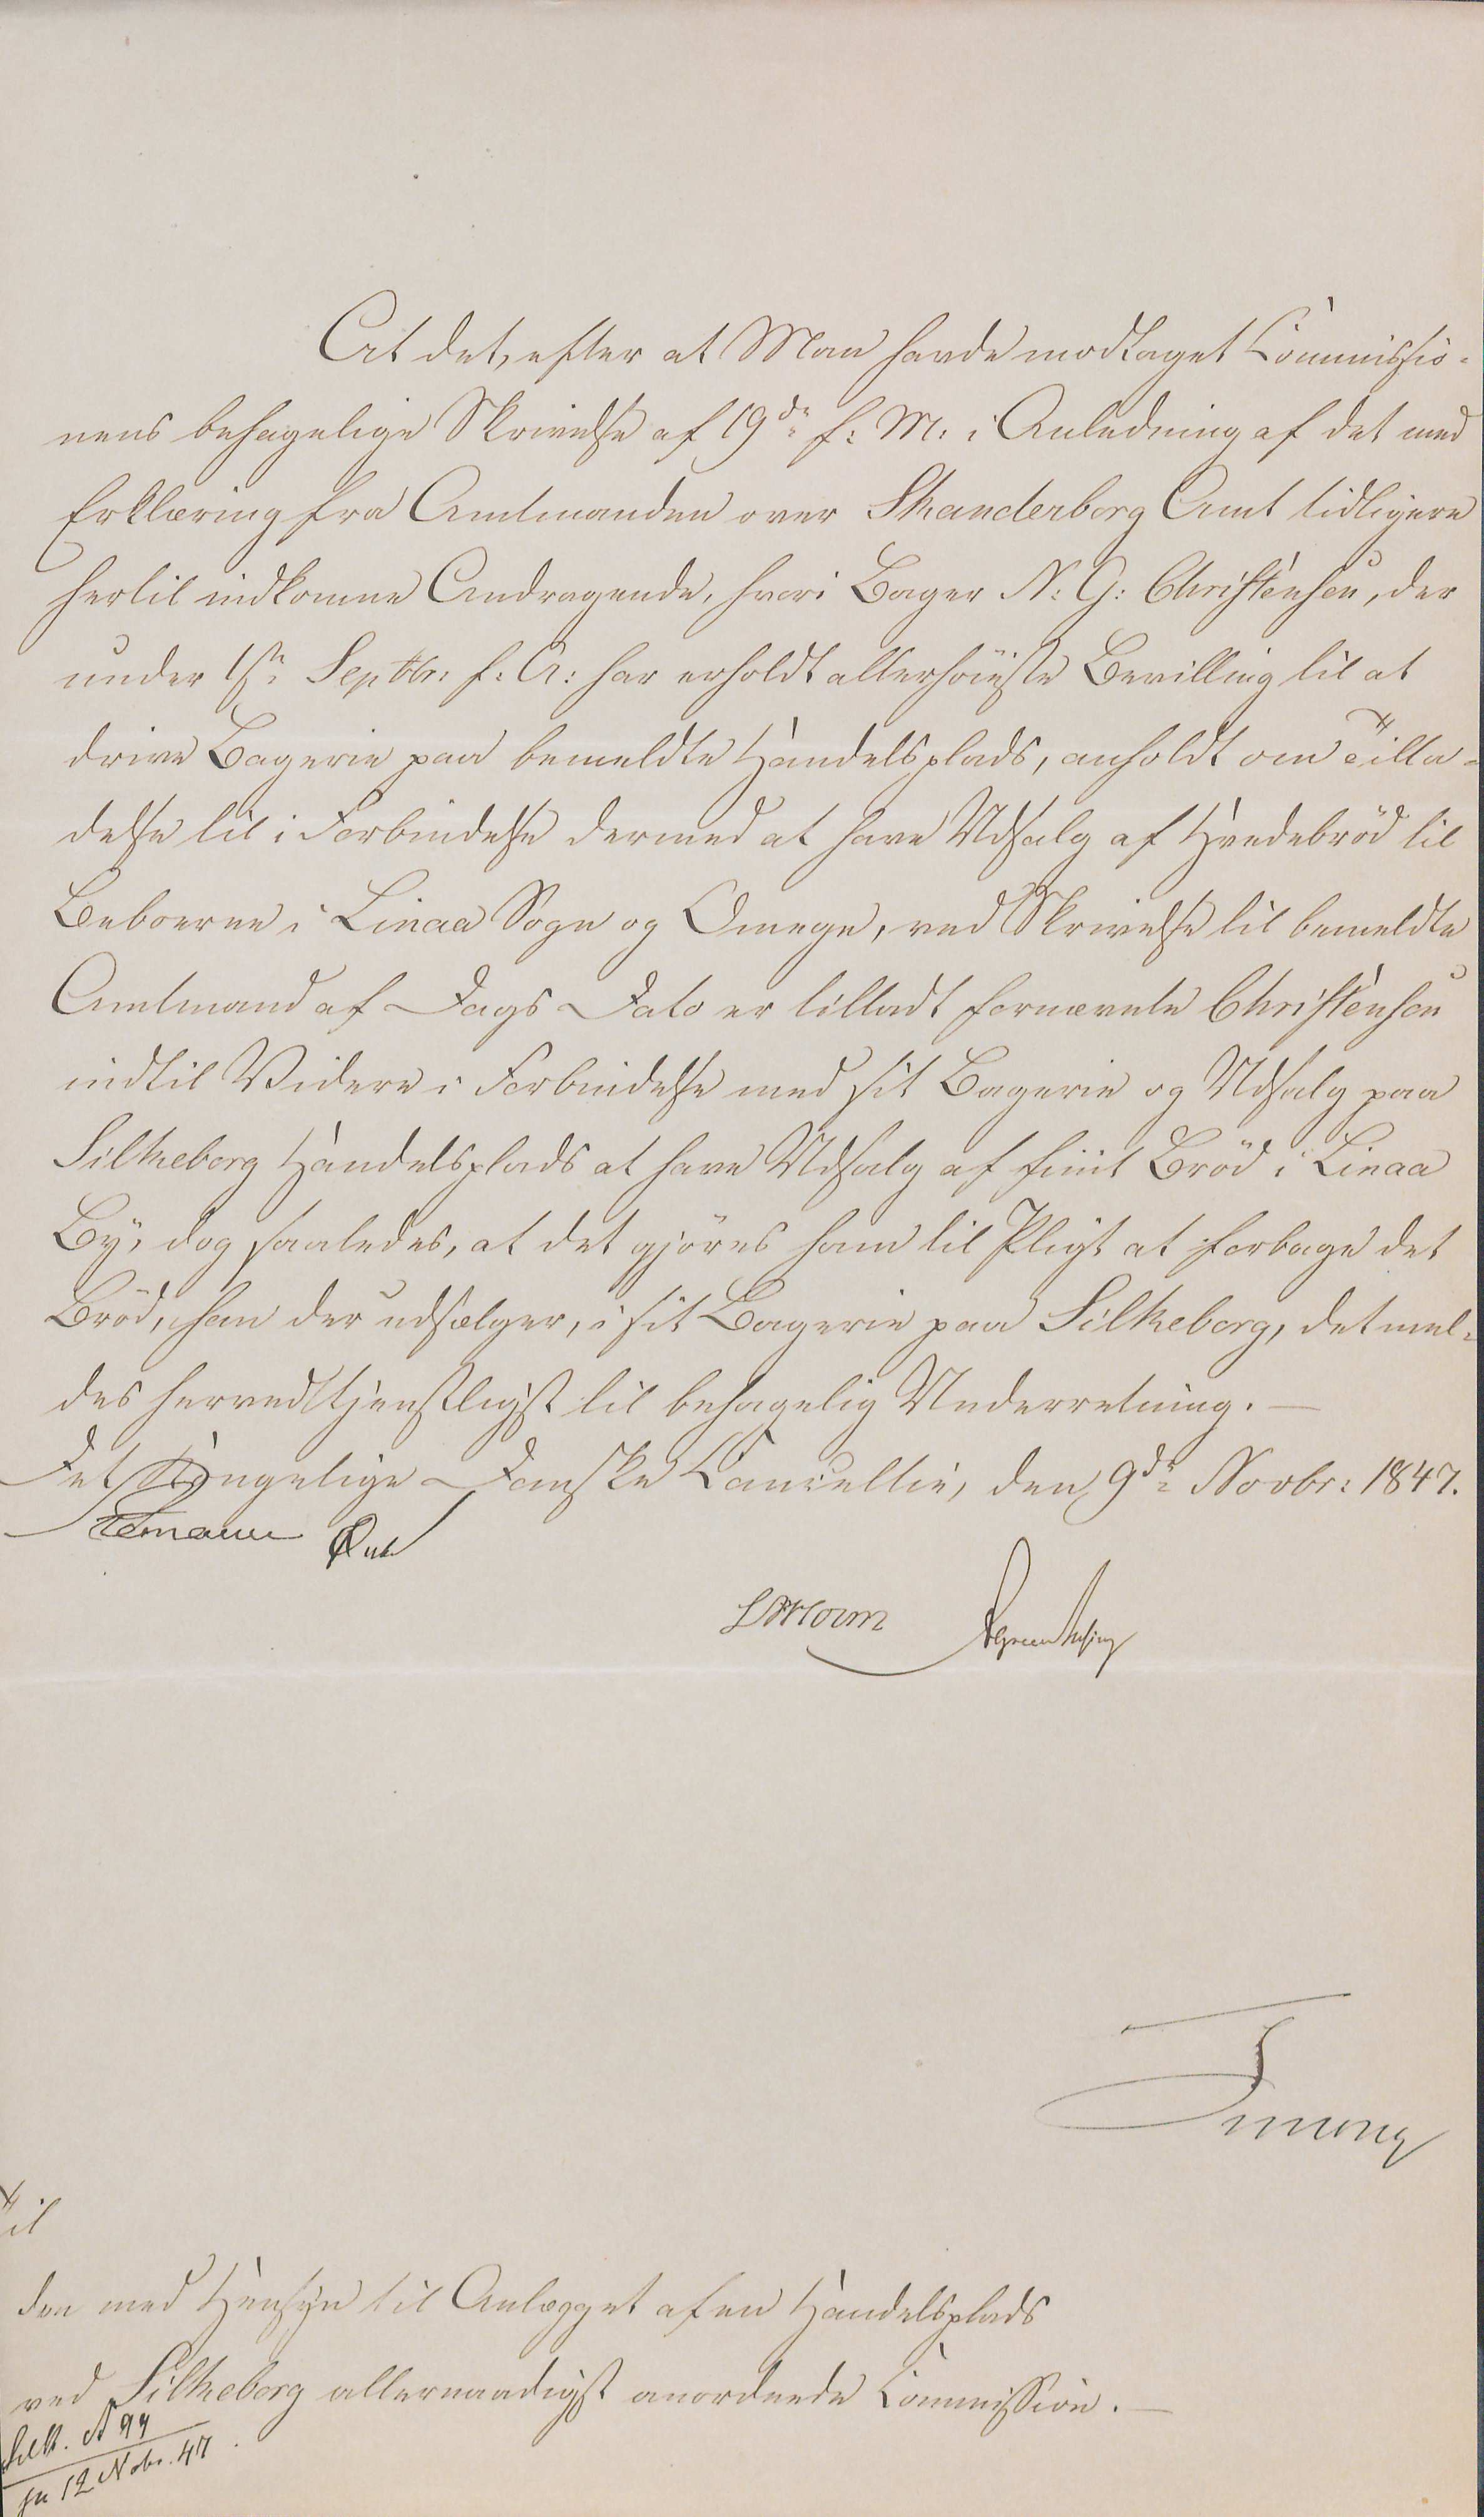 At det, efter at Man havde modtaget Commissio-
nens behagelige Skrivelse af 19de f: M. i Anledning af det med
Erklæring fra Amtmanden over Skanderborg Amt tidligere
hertil indkomne Andragende, hvori Bager N: G: Christensen, der
under 1ste Septbr: f: A: har erholdt allerhöieste Bevilling til at
drive Bagerie paa bemeldte Handelsplads, anholdt om Tilla-
delse til i Forbindelse dermed at have Udsalg af Hvedebröd til
Beboerne i Linaa Sogn og Omegn, ved Skrivelse til bemeldte
Amtmand af Dags Dato er tilladt fornævnte Christensen
indtil Videre i Forbindelse med sit Bagerie og Udsalg paa
Silkeborg Handelsplads at have Udsalg af fiint Bröd i Linaa
By, dog saaledes, at det gjöres ham til Pligt at forbage det
Bröd, han der udsælger, i sit Bagerie paa Silkeborg, det mel-
des herved tjenstligst til behagelig Underretning. —
Det Kongelige Danske Cancellie, den 9de Novbr: 1847.
Stemann
Til
den med Hensyn til Anlægget af en Handelsplads
ved Silkeborg allernaadigst anordnede Commission. —
Silk. N 94
pr 12 Nobr. 47